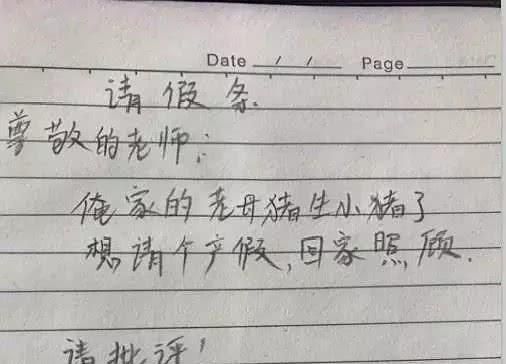 Date / / Page
请假条.
尊敬的老师:
俺家的老母猪生小猪了
想请个产假,回家照顾.
请批评!